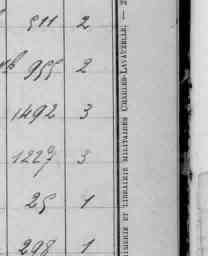 511 2
955 2
1492 3
1227 3
25 1
298 1
IMPRIMERIE ET LIBRAIRIE MILITAIRES CHARLES-LAVAUZELLE. —